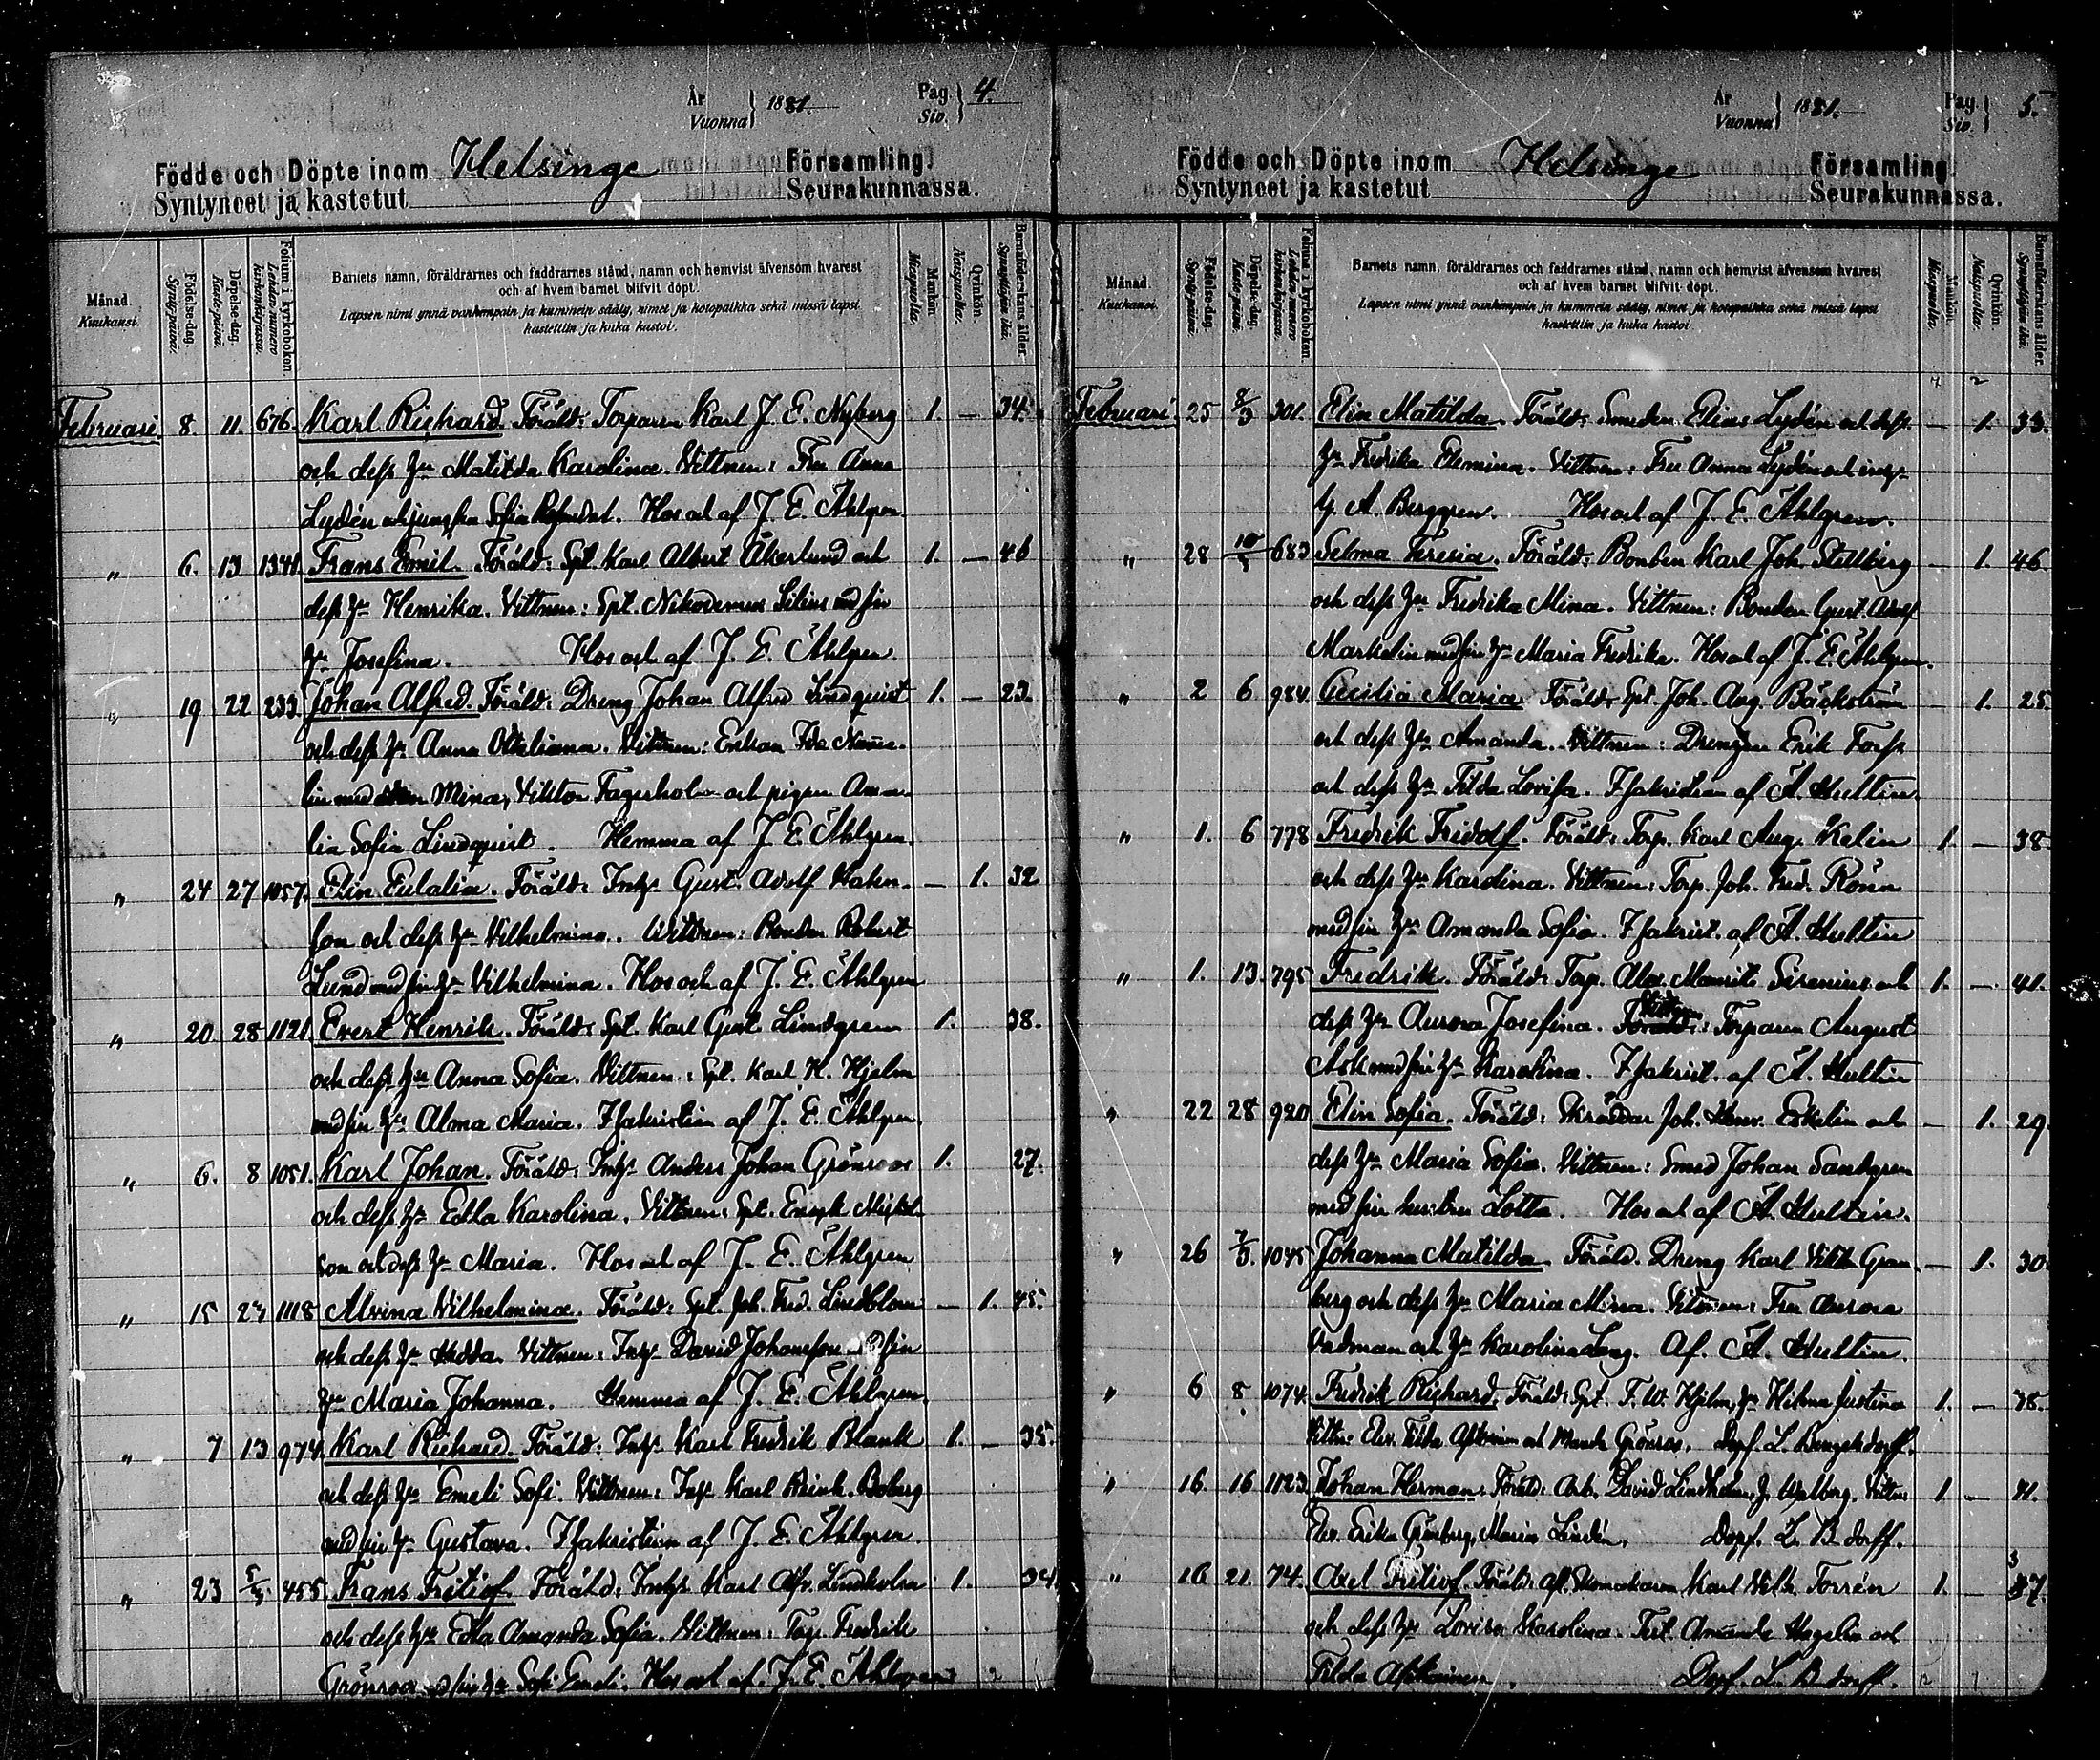 År
Vuonna } 1881.
Pag.
Siv. } 4.
Födde och Döpte inom Helsinge Församling.
Syntyneet ja kastetut Seurakunnassa.
Månad. Kuukausi.
Födelse-dag. Synty-päivä.
Döpelse-dag. Kaste-päivä.
Folium i kyrkoboken. Lehden numero kirkonkirjassa.
Barnets namn, föräldrarnes och faddrarnes stånd, namn och hemvist äfvensom hvarest
och af hvem barnet blifvit döpt.
Lapsen nimi ynnä vanhempain ja kummein sääty, nimet ja kotopaikka sekä missä lapsi
kastettiin ja kuka kastoi.
Mankön. Miespuolia.
Qvinkön. Naispuolia.
Barnaföderskans ålder. Synnyttäjän ikä.
Februari. 8. 11. 676. Karl Richard. Föräld: Torparen Karl J. E. Nyberg 1. — 34.
och dess hu Matilda Karolina. Vittnen: Fru Anna
Lydén och jungfru Sofia. Hos och af J. E. Ahlgren.
" 6. 13 1341. Frans Emil. Föräld: Spt. Karl Albert Åkerlund och 1. — 46
dess hu Henrika. Vittnen: Spt. Nikodemus Silius med sin
hu Josefina. Hos och af J. E. Ahlgren.
" 19 22 233. Johan Alfred. Föräld: Dreng Johan Alfred Lindquist 1. — 23.
och dess hu Anna Otteliana. Vittnen: Enkan Ida
lin med Mina, Viktor Fagerholm och pigan Ama-
lia Sofia Lindquist. Hemma af J. E. Ahlgren.
" 24 27 1057. Elin Eulalia. Föräld: Inhs Gust. Adolf Hahn- — 1. 32
son och dess hu Vilhelmina. Vittnen: Bonden Robert
Lund med sin hu Vilhelmina. Hos och af J. E. Ahlgren
" 20 28 1121. Evert Henrik. Föräld: Spt. Karl Gust. Lindgren 1. 38.
och dess hu Anna Sofia. Vittnen: Spt. Karl H. Hjelm
med sin hu Alma Maria. I sakristian af J. E. Ahlgren.
" 6. 8 1051. Karl Johan. Föräld: Inhs Anders Johan Grönroos 1. 27.
och dess hu Edla Karolina. Vittnen: Spt. Mickel-
son och dess hu Maria. Hos och af J. E. Ahlgren
" 15 27 1118 Alvina Vilhelmina. Föräld: Spt. Joh. Fred. Lindblom — 1. 45.
och dess hu Hedda. Vittnen: Inhs David Johansson sin
hu Maria Johanna. Hemma af J. E. Ahlgren.
" 7 13 974. Karl Richard. Föräld: Inhs Karl Fredrik Blank 1. — 35.
och dess hu Emeli Sofi. Vittnen: Inhs Karl Boberg
med sin hu Gustava. I sakristian af J. E. Ahlgren.
" 23 5/3 455 Frans Fritiof. Föräld: Inhs Karl Alfr. Lindholm 1. 34.
och dess hu Edla Amanda Sofia. Vittnen: Torp. Fredrik
Grönroos sin hu Sofi Emeli. Hos och af J. E. Ahlgren
År
Vuonna } 1881.
Pag.
Siv. } 5.
Födde och Döpte inom Helsinge Församling.
Syntyneet ja kastetut Seurakunnassa.
Månad. Kuukausi.
Födelse-dag. Synty-päivä.
Döpelse-dag. Kaste-päivä.
Folium i kyrkoboken. Lehden numero kirkonkirjassa.
Barnets namn, föräldrarnes och faddrarnes stånd, namn och hemvist äfvensom hvarest
och af hvem barnet blifvit döpt.
Lapsen nimi ynnä vanhempain ja kummein sääty, nimet ja kotopaikka sekä missä lapsi
kastettiin ja kuka kastoi.
Mankön. Miespuolia.
Qvinkön. Naispuolia.
Barnaföderskans ålder. Synnyttäjän ikä.
Februari. 25 8/3 301. Elin Matilda. Föräld: Smeden Elius Lydén och dess — 1. 33.
hu Fredrika Elemina. Vittnen: Fru Anna Lydén och
G. A. Berggren. Hos och af J. E. Ahlgren.
" 28 10/3 683 Selma Teresia. Föräld: Bonden Karl Joh. Stellberg — 1. 46.
och dess hu Fredrika Mina. Vittnen: Bonden Gust. Adolf
Markelin med sin hu Maria Fredrika. Hos och af J. E. Ahlgren.
" 2 6 984. Cecilia Maria Föräld: Spt. Joh. Aug. Bäckström — 1. 25.
och dess hu Amanda. Vittnen: Drengen Erik Forss
och dess hu Tilda Lovisa. I sakristian af A. Hultin.
" 1. 6 778 Fredrik Fridolf. Föräld: Torp. Karl Aug. Kelin 1. — 38.
och dess hu Karolina. Vittnen: Torp. Joh. Fred. Rönn
med sin hu Amanda Sofia. I sakrist. af A. Hultin
" 1. 13. 795 Fredrik. Föräld: Torp. Alex. Maurits Sirenius och 1. — 41.
dess hu Aurora Josefina. Vittnen: Torparen August
Ask med sin hu Karolina. I sakrist. af A. Hultin
" 22 28 920. Elin Sofia. Föräld: Skräddar Joh. Henr. Eskelin och — 1. 29.
dess hu Maria Sofia. Vittnen: Smed Johan Sandgren
med sin hustru Lotta. Hos och af A. Hultin.
" 26 7/3. 1045 Johanna Matilda. Föräld. Dreng Karl Vikt. Gran- — 1. 30
berg och dess hu Maria Mina. Vittnen: Fru Aurora
Vadman och hu Karolina Lang. Af. A. Hultin.
" 6 8 1074. Fredrik Richard. Föräld: Spt. F. W. Hjelm, hu Hilma Justina 1. — 38.
Vittn: Elev. Tilda och Manda Grönroos. Dopf. L. Bengelsdorff.
" 16. 16 1123. Johan Herman. Föräld: Arb. David Lindholm, h. Walborg. Vittn: 1 — 41.
Elev. Erika Grönberg, Maria Lindén. Dopf. L. B dorff.
" 16 21. 74. Axel Fritiof. Föräld: afl. Skomakaren Karl Vilh. Torrén 1. — 37.
och dess hu Lovisa Karolina. Test. Amanda Hagelin och
Tilda. Dopf. L. B dorff.